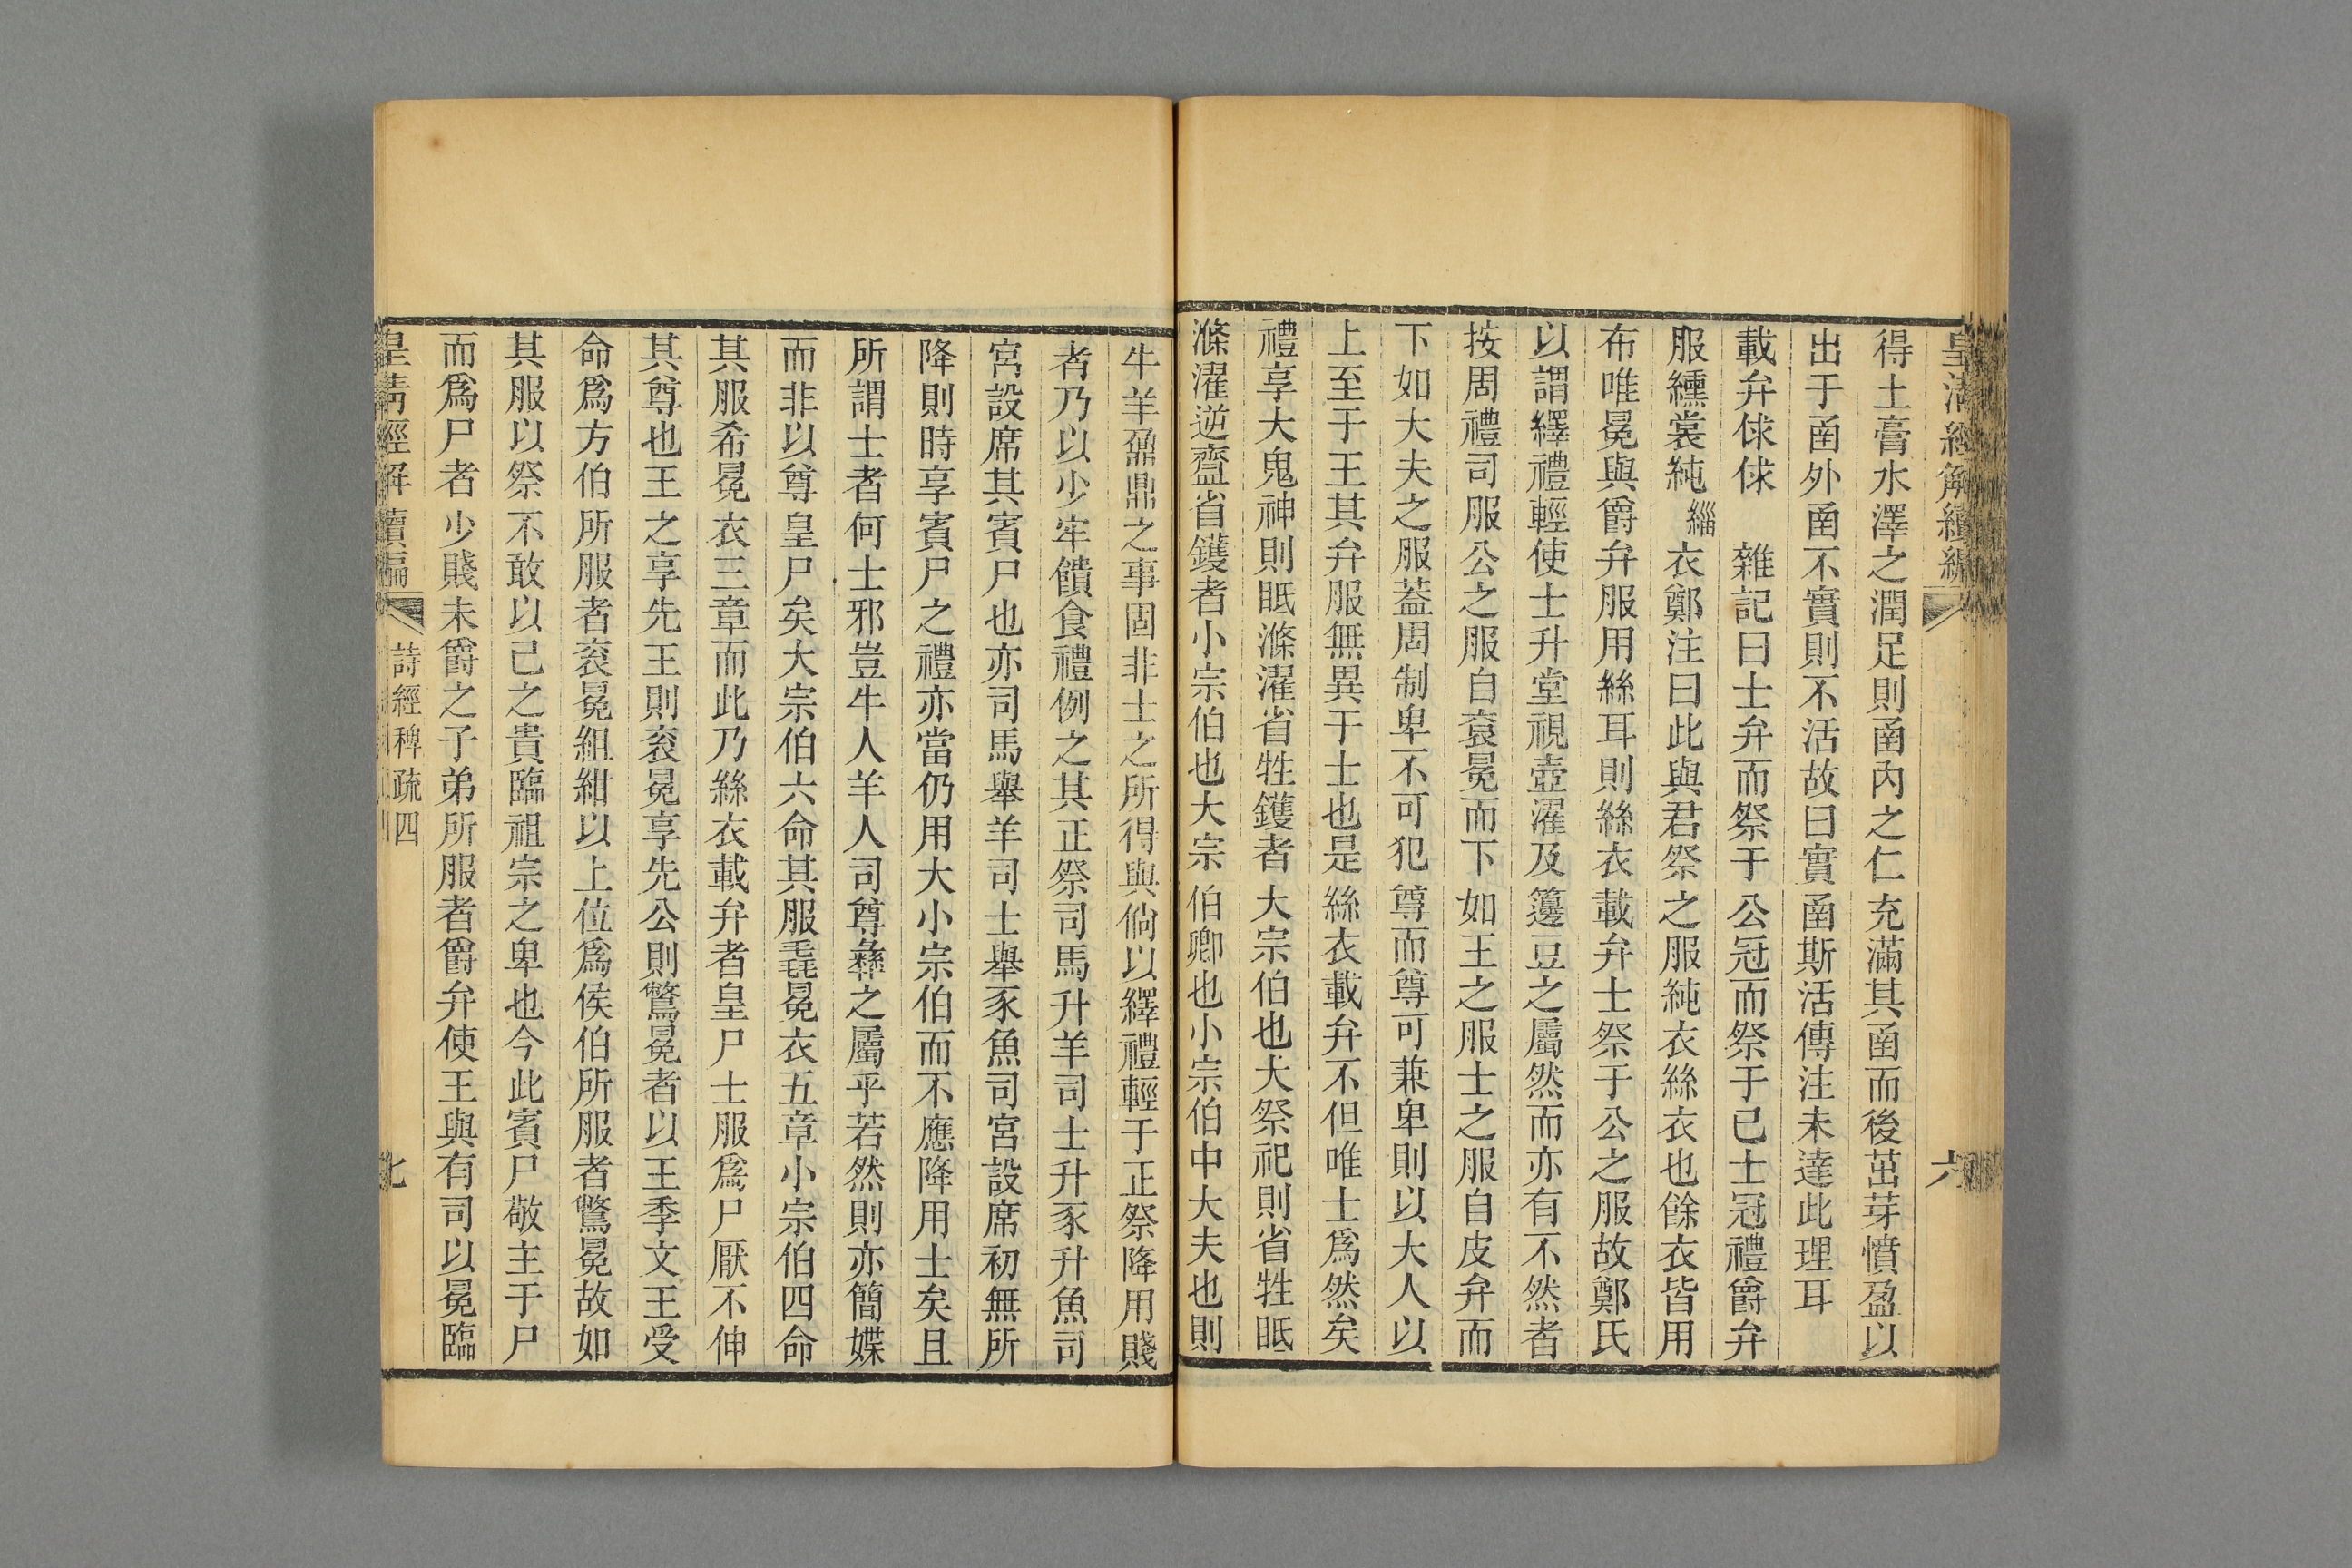 皇清經解續編
六
得土膏水澤之潤足則函內之仁充滿其函而後茁芽憤盈以
出于函外函不實則不活故曰實函斯活傳注未達此理耳
載弁俅俅　雜記曰士弁而祭于公冠而祭于己士冠禮爵弁
服纁裳純緇衣鄭注曰此與君祭之服純衣絲衣也餘衣皆用
布唯冕與爵弁服用絲耳則絲衣載弁士祭于公之服故鄭氏
以謂繹禮輕使士升堂視壺濯及籩豆之屬然而亦有不然者
按周禮司服公之服自袞冕而下如王之服士之服自皮弁而
下如大夫之服蓋周制卑不可犯尊而尊可兼卑則以大人以
上至于王其弁服無異于士也是絲衣載弁不但唯士爲然矣
禮享大鬼神則眡滌濯省牲鑊者大宗伯也大祭祀則省牲眡
滌濯逆齍省鑊者小宗伯也大宗伯卿也小宗伯中大夫也則
牛羊鼐鼎之事固非士之所得與倘以繹禮輕于正祭降用賤
者乃以少牢饋食禮例之其正祭司馬升羊司士升豕升魚司
宮設席其賓尸也亦司馬舉羊司士舉豕魚司宮設席初無所
降則時享賓尸之禮亦當仍用大小宗伯而不應降用士矣且
所謂士者何士邪豈牛人羊人司尊彝之屬乎若然則亦簡媟
而非以尊皇尸矣大宗伯六命其服毳冕衣五章小宗伯四命
其服希冕衣三章而此乃絲衣載弁者皇尸士服爲尸厭不伸
其尊也王之享先王則袞冕享先公則鷩冕者以王季文王受
命爲方伯所服者袞冕組紺以上位爲侯伯所服者鷩冕故如
其服以祭不敢以己之貴臨祖宗之卑也今此賓尸敬主于尸
而爲尸者少賤未爵之子弟所服者爵弁使王與有司以冕臨
皇清經解續編
詩經稗疏四